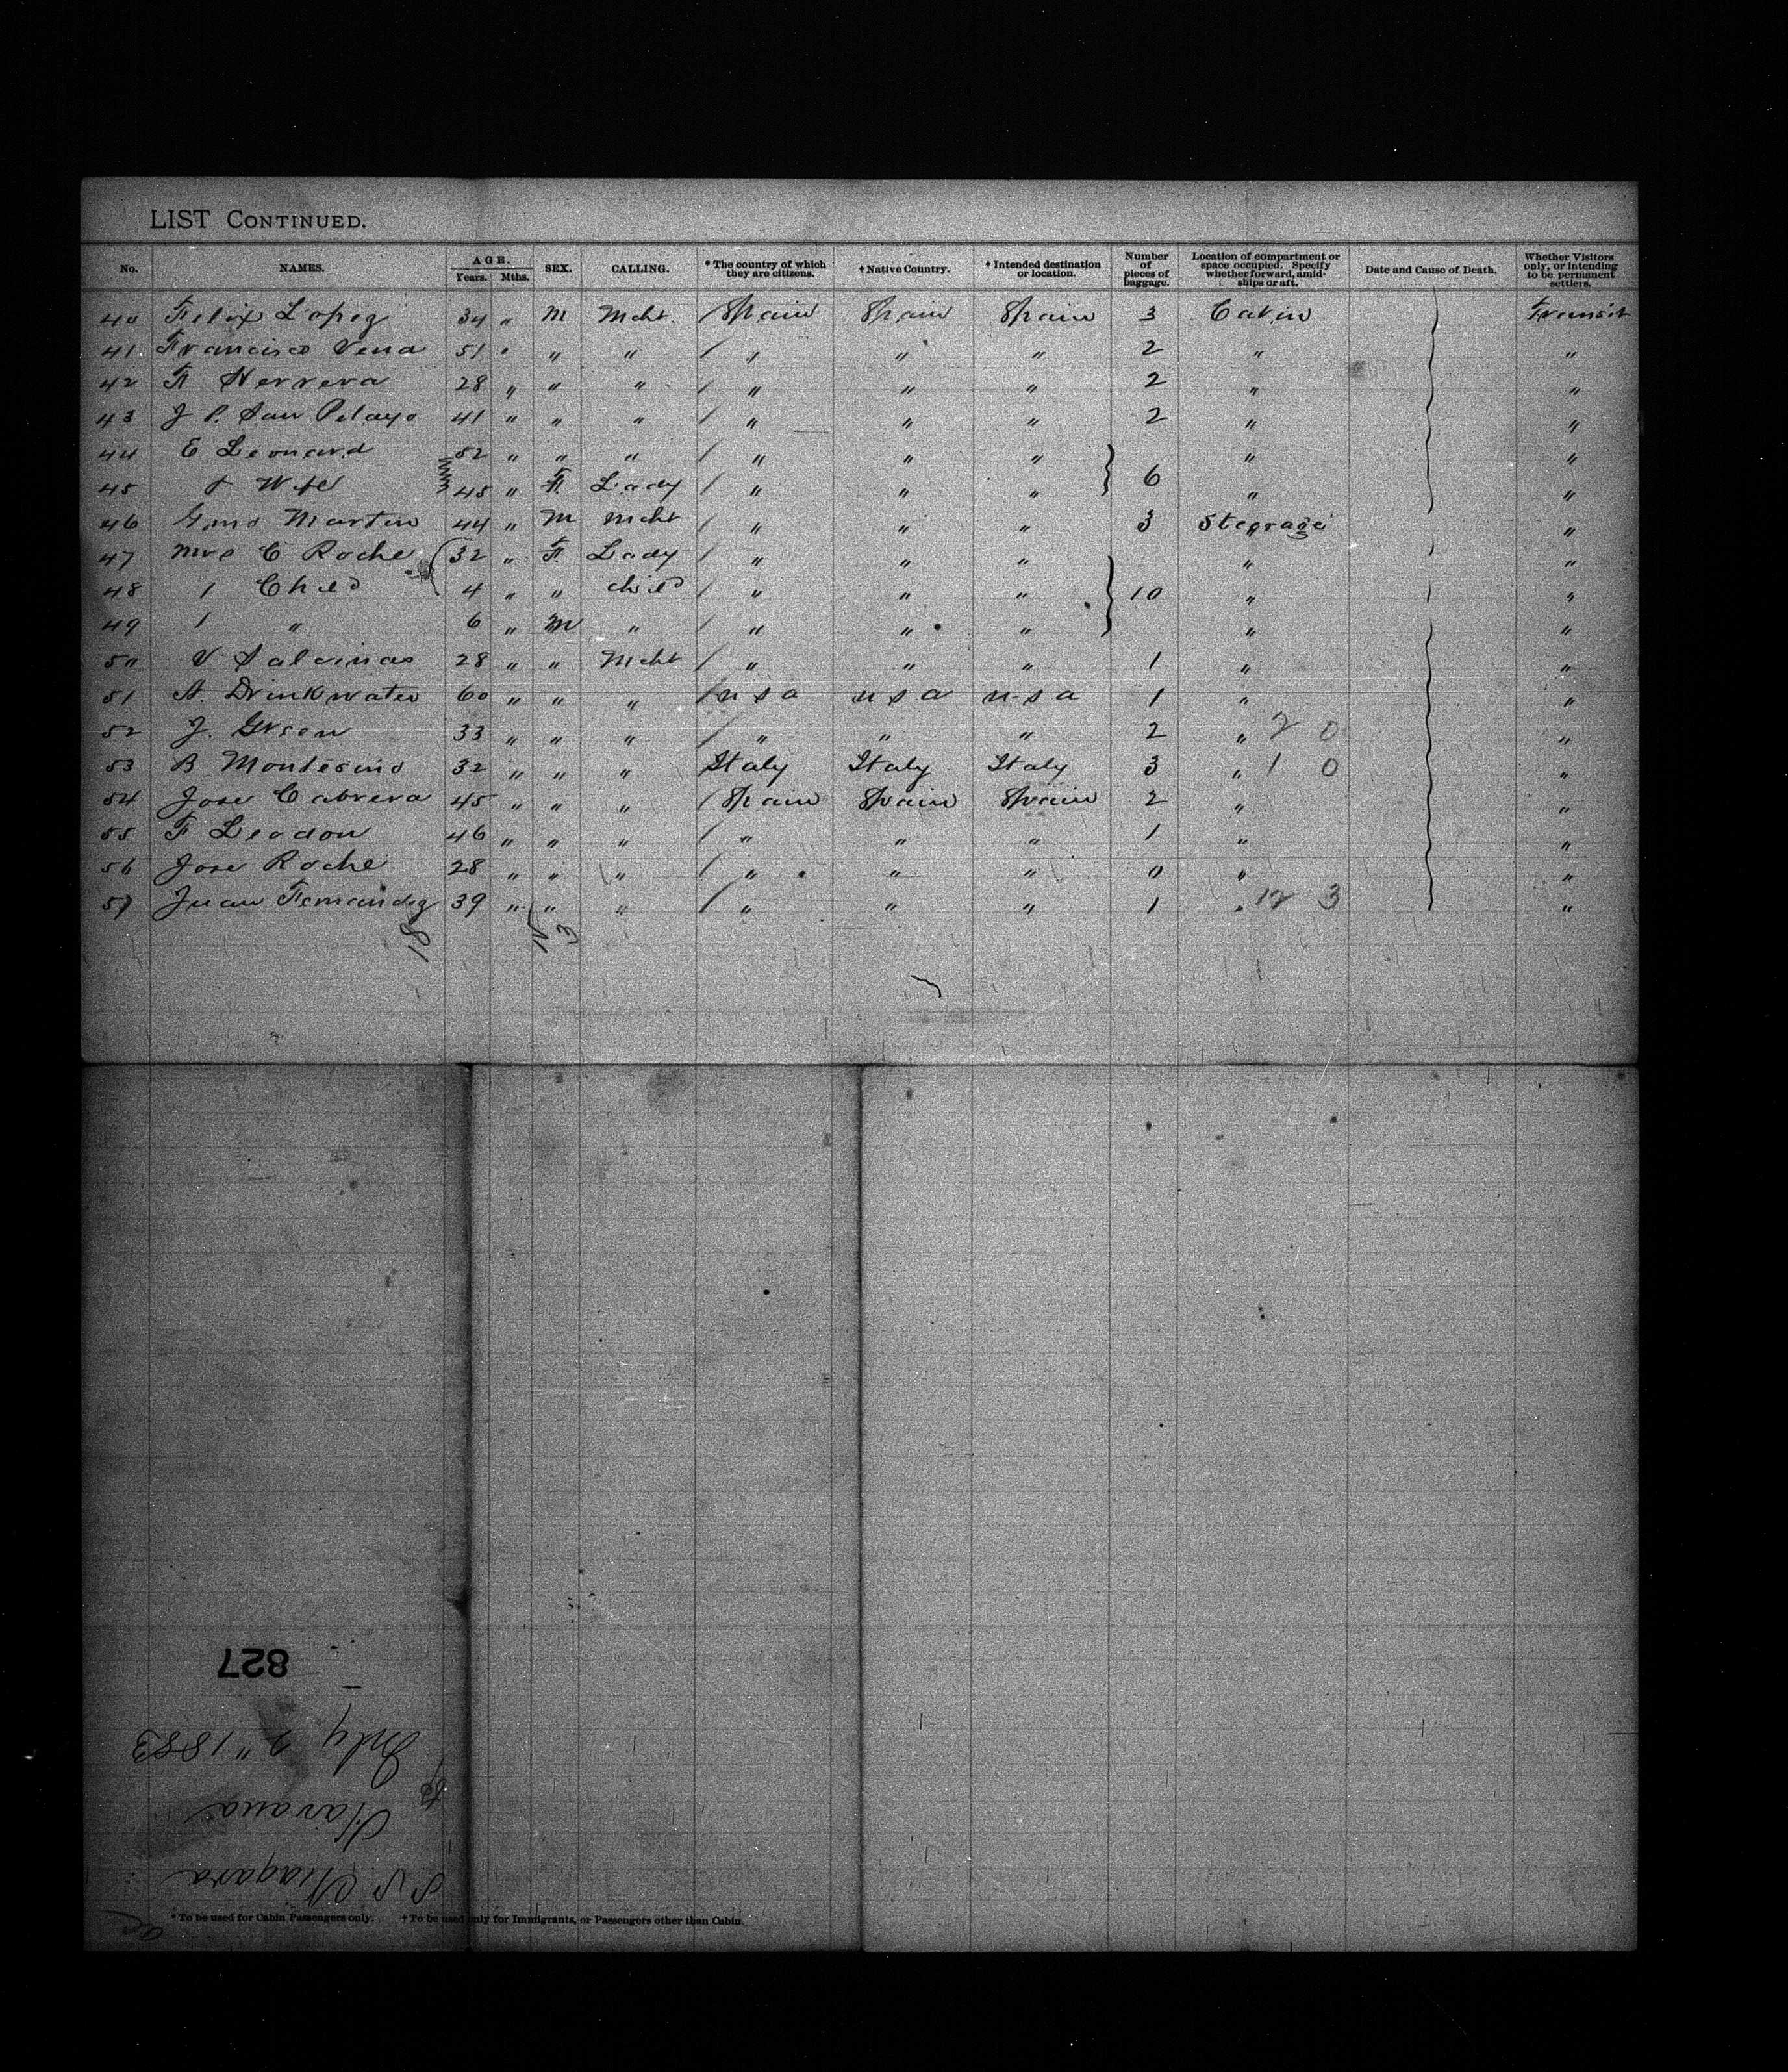 LIST CONTINUED.
No. NAMES. AGE. Years. Mths. SEX. CALLING. * The country of which they are citizens. † Native Country. † Intended destination or location. Number of pieces of baggage. Location of compartment or space occupied. Specify whether forward, amidships or aft. Date and Cause of Death. Whether Visitors only, or intending to be permanent settlers.
40 Felix Lopez 34 " M Mcht. / Spain Spain Spain 3 Cabin Transit
41 Francisco Vena 51 " " " / " " " 2 " "
42 F Herrera 28 " " " / " " " 2 " "
43 J P. San Pelayo 41 " " " / " " " 2 " "
44 E Leonard 52 " " " / " " " " "
45 & Wife 45 " F. Lady / " " " 6 " "
46 Gmo Martin 44 " M Mcht / " " " 3 Steerage "
47 Mrs C Roche 32 " F. Lady / " " " " "
48 1 Child 4 " " Child / " " " 10 " "
49 1 " 6 " M " / " " " " "
50 V Salcinas 28 " " Mcht / " " " 1 " "
51 A. Drinkwater 60 " " " / U S A U S A U S A 1 " "
52 J. Green 33 " " " / " " " 2 " 2 0 "
53 B Montesino 32 " " " Italy Italy Italy 3 " 1 0 "
54 Jose Cabrera 45 " " " / Spain Spain Spain 2 " "
55 F Leodon 46 " " " / " " " 1 " "
56 Jose Roche 28 " " " / " " " 0 " "
57 Juan Fernandez 39 " " " / " " " 1 " 12 3 "
18 15 3
827
July 2" 1883
Havana
S S Niagara
* To be used for Cabin Passengers only. † To be used only for Immigrants, or Passengers other than Cabin.